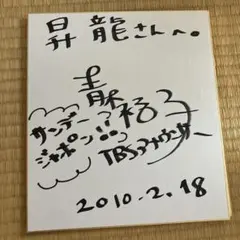 昇龍さんへ。
青木裕子
サンデー
ジャポン!!
TBSアナウンサー
2010-2.18